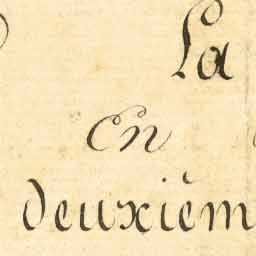 La
En
deuxièm